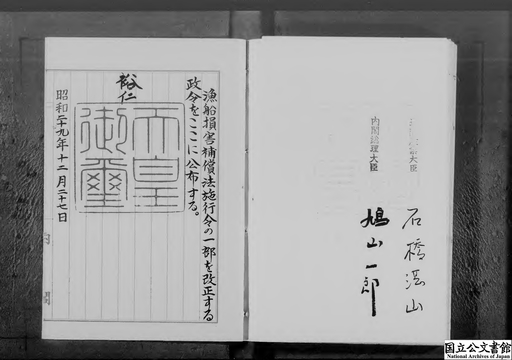 大臣 石橋湛山
内閣総理大臣 鳩山一郎
漁船損害補償法施行令の一部を改正する
政令をここに公布する。
裕仁
天皇御璽
昭和二十九年十二月二十七日
国立公文書館
National Archives of Japan